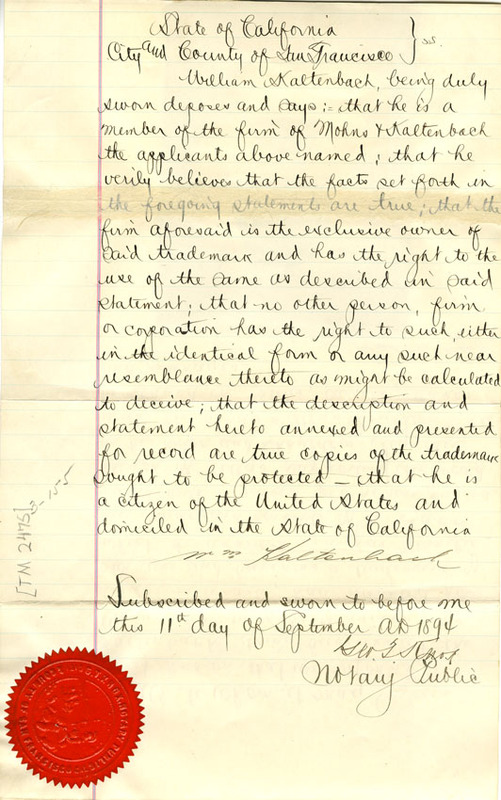 State of California
City and County of San Francisco } ss.
William Kaltenbach, being duly
sworn deposes and says:- that he is a
member of the firm of Mohns & Kaltenbach
the applicants above named; that he
verily believes that the facts set forth in
the foregoing statements are true; that the
firm aforesaid is the exclusive owner of
said trademark and has the right to the
use of the same as described in said
statement; that no other person, firm
or corporation has the right to such, either
in the identical form or any such near
resemblance thereto as might be calculated
to deceive; that the description and
statement hereto annexed and presented
for record are true copies of the trademark
sought to be protected – that he is
a citizen of the United States and
domiciled in the State of California
Wm Kaltenbach
Subscribed and sworn to before me
this 11th day of September AD 1894
Geo. T. Knox
Notary Public
[TM 2475]